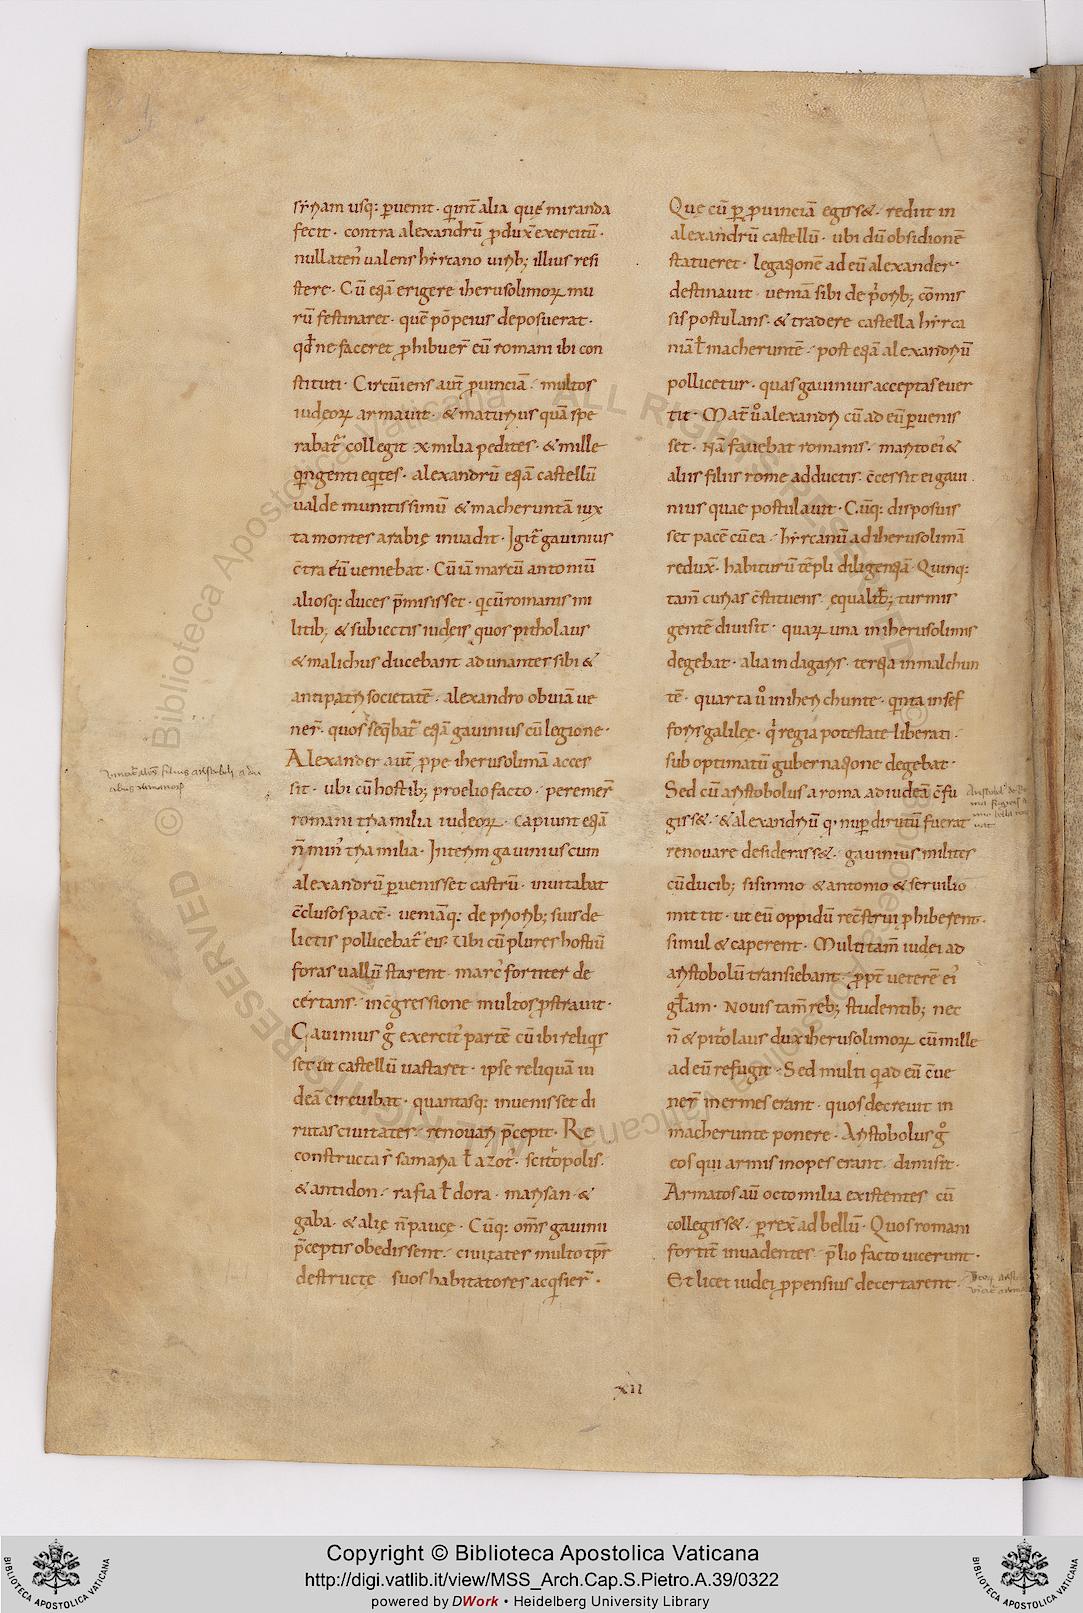 syriam usq; ꝑuenit · qͥ int̄ alia que miranda
fecit · contra alexandrū ꝓdux̄ exercitū ·
nullaten᷒ ualens hyrcano uirib; illius resi
stere · Cū etiā erigere iherusolimoꝝ mu
rū festinaret · quē pōpeius deposuerat ·
qđ ne faceret ꝓhibuer̄ eū romani ibi con
stituti · Circūiens aut̄ ꝓuinciā · multos
iudeoꝝ armauit · & maturius quā spe
rabat᷑ collegit x milia pedites · & mille
qͥngenti eqͥtes · alexandrū etiā castellū
ualde munitissimū & macheruntā iux
ta montes arabię inuadit · Igit᷑ gauinius
c̄tra eū ueniebat · Cū iā marcū antoniū
aliosq; duces p̄misisset · qͥ cū romanis mi
litib; & subiectis iudęis quos pitholaus
& malichus ducebant adunanter sibi &
antipatri societatē · alexandro obuiā ue
ner̄ · quos seq̄bat᷑ etiā gauinius cū legione ·
Alexander aut̄ ꝓpe iherusolimā acces
sit · ubi cū hostib; proelio facto · peremer̄
romani tria milia iudeoꝝ · capiunt etiā
n̄ min᷒ tria milia · Interim gauinius cum
alexandrū ꝑuenisset castrū · inuitabat
c̄clusos pacē · ueniāq; de priorib; suis de
lictis pollicebat᷑ eis · Ubi cū plures hostiū
foras uallū starent · marc᷒ fortiter de
certans · in c̄gressione multos ꝓstrauit ·
Gauinius gͦ exercit᷒ partē cū ibi reliqͥs
set ut castellū uastaret · ipse reliquā iu
deā circuibat · quantasq; inuenisset di
rutas ciuitates · renouari p̄cepit · Re
constructa ē samaria ł azot᷒ · scitopolis ·
& antidon · rafia ł dora · marisan · &
gaba · & alię n̄ paucę · Cūq; om̄s gauinii
p̄ceptis obedissent · ciuitates multo tp̄r
destructę suos habitatores acqͥsier̄ ·
Quę cū ꝑ ꝓuinciā egiss& · rediit in
alexandrū castellū · ubi dū obsidionē
statueret · legationē ad eū alexander
destinauit · ueniā sibi de p̄orib; cōmis
sis postulans · & tradere castella hyrca
niā ł macheruntē · post etiā alexandriū
pollicetur · quas gauinius acceptas euer
tit · Mat̄ uͦ alexandri cū ad eū ꝑuenis
set · Nā fauebat romanis · marito ei᷒ &
aliis filiis rome adductis · c̄cessit ei gaui
nius quae postulauit · Cūq; disposuis
set pacē cū ea · hyrcanū ad iherusolimā
redux̄ · habiturū tēpli diligentiā · Quinq;
tam̄ curias c̄stituens · equalib; turmis
gentē diuisit · quaꝝ una in iherusolimis
degebat · alia in dagaris · tertia in malchun
tē · quarta uͦ in iherichunte · qͥnta in sef
foris galileę · qͥ regia potestate liberati ·
sub optimatū gubernatione degebat ·
Sed cū aristobolus a roma ad iudeā c̄fu
giss& · & alexandriū qͥ nuꝑ dirutū fuerat
renouare desiderass& · gauinius milites
cū ducib; sisinnio & antonio & seruilio
mittit · ut eū oppidū rec̄strui ꝓhiberent ·
simul & caperent · Multi tam̄ iudei ad
aristobolū transiebant · ꝓpt̄ ueterē ei᷒
głam · Nouis tam̄ reb; studentib; nec
n̄ & pitolaus dux iherusolimoꝝ cū mille
ad eū refugit · Sed multi qͥ ad eū c̄ue
ner̄ inermes erant · quos decreuit in
macherunte ponere · Aristobolus gͦ
eos qui armis inopes erant · dimisit ·
Armatos aū octo milia existentes cū
collegiss& · ꝑrex̄ ad bellū · Quos romani
fortit̄ inuadentes · p̄lio facto uicerunt ·
Et licet iudei ꝓpensius decertarent ·
xii
Copyright © Biblioteca Apostolica Vaticana
http://digi.vatlib.it/view/MSS_Arch.Cap.S.Pietro.A.39/0322
powered by DWork • Heidelberg University Library